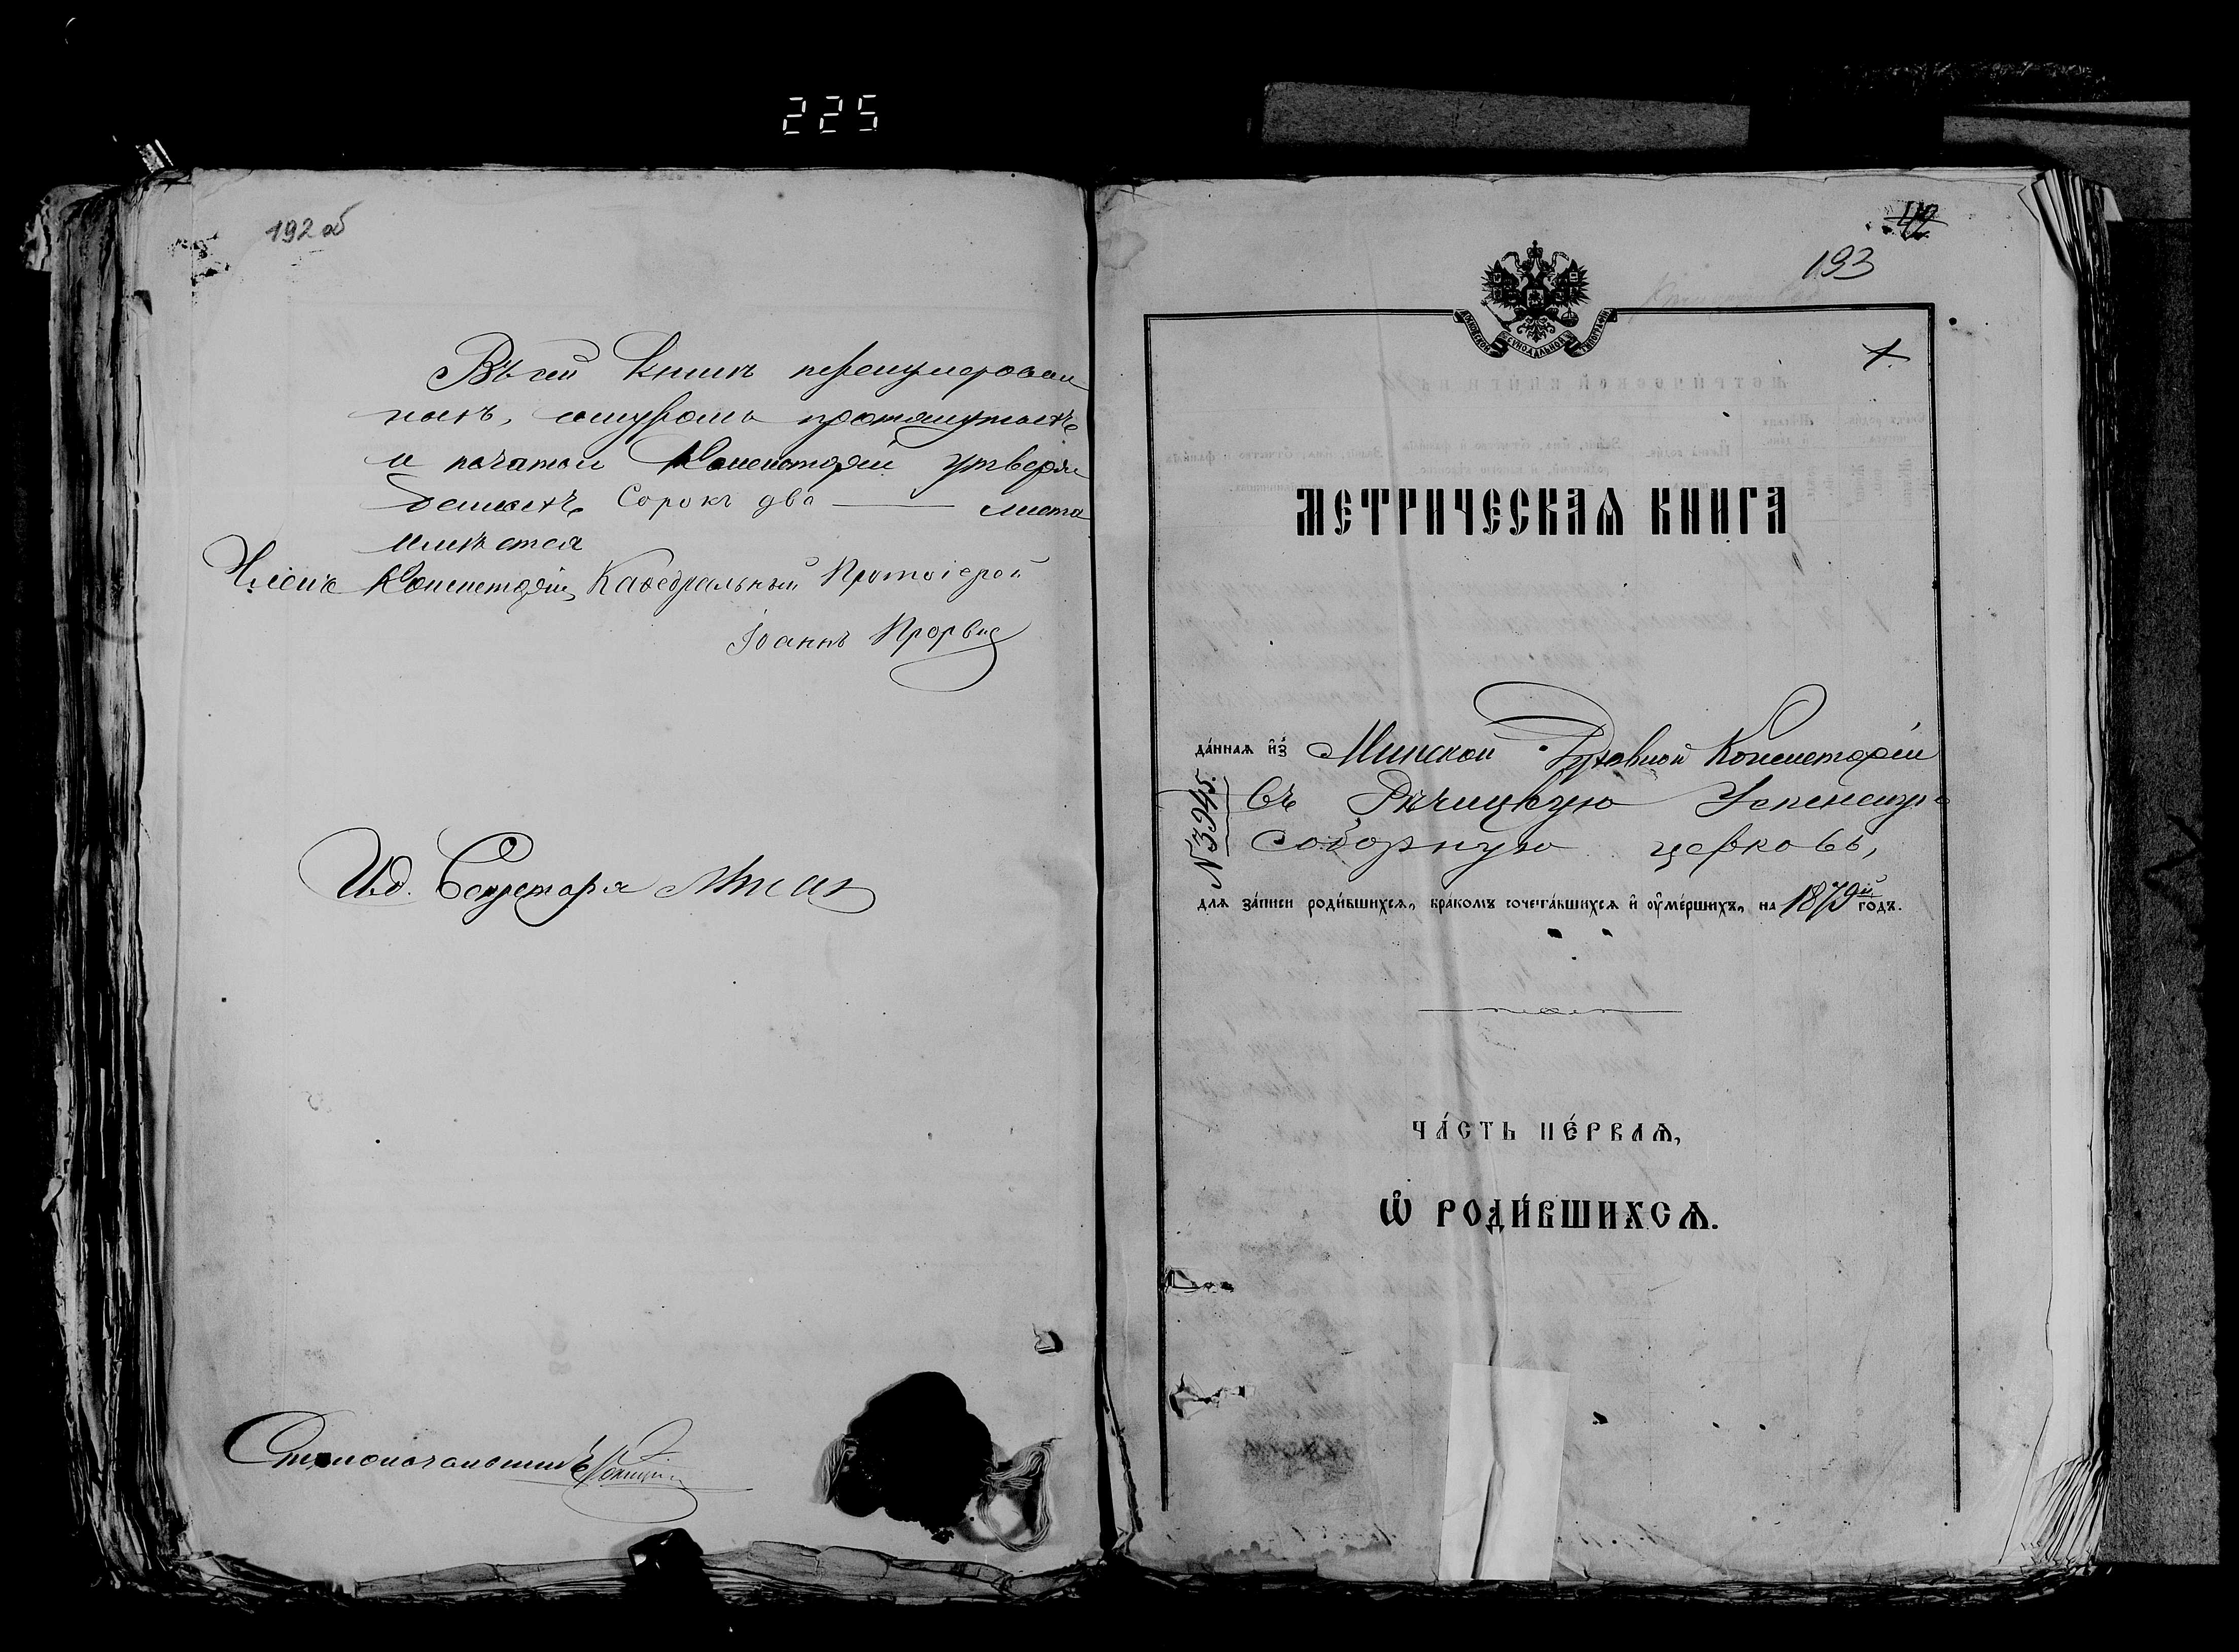 225
192 об
Въ сей книгѣ перенумерован
ныхъ, шнуромъ протянутыхъ
и печатью Консисторіи утверж
денныхъ Сорокъ два листа
имѣется
Членъ Консисторіи, Каѳедральный Протоіерей
Іоаннъ
И.д. Секретаря
Столоначальникъ
42
193
МОСКОВСКОЙ СѴНОДАЛЬНОЙ ТИПОГРАФІИ
МЕТРИЧЕСКАѦ КНИГА
да́ннаѧ и҆з̾ Минской Духовной Консисторіи
въ Рѣчицкую Успенскую
Соборную церковь,
№ 3945.
для за́писи роди́вшихсѧ, бра́комъ сочета́вшихсѧ и҆ ᲂу҆ме́ршихъ, на 1879й годъ.
ЧА́СТЬ ПЕ́РВАѦ,
Ѡ҆ РОДИ́ВШИХСѦ.